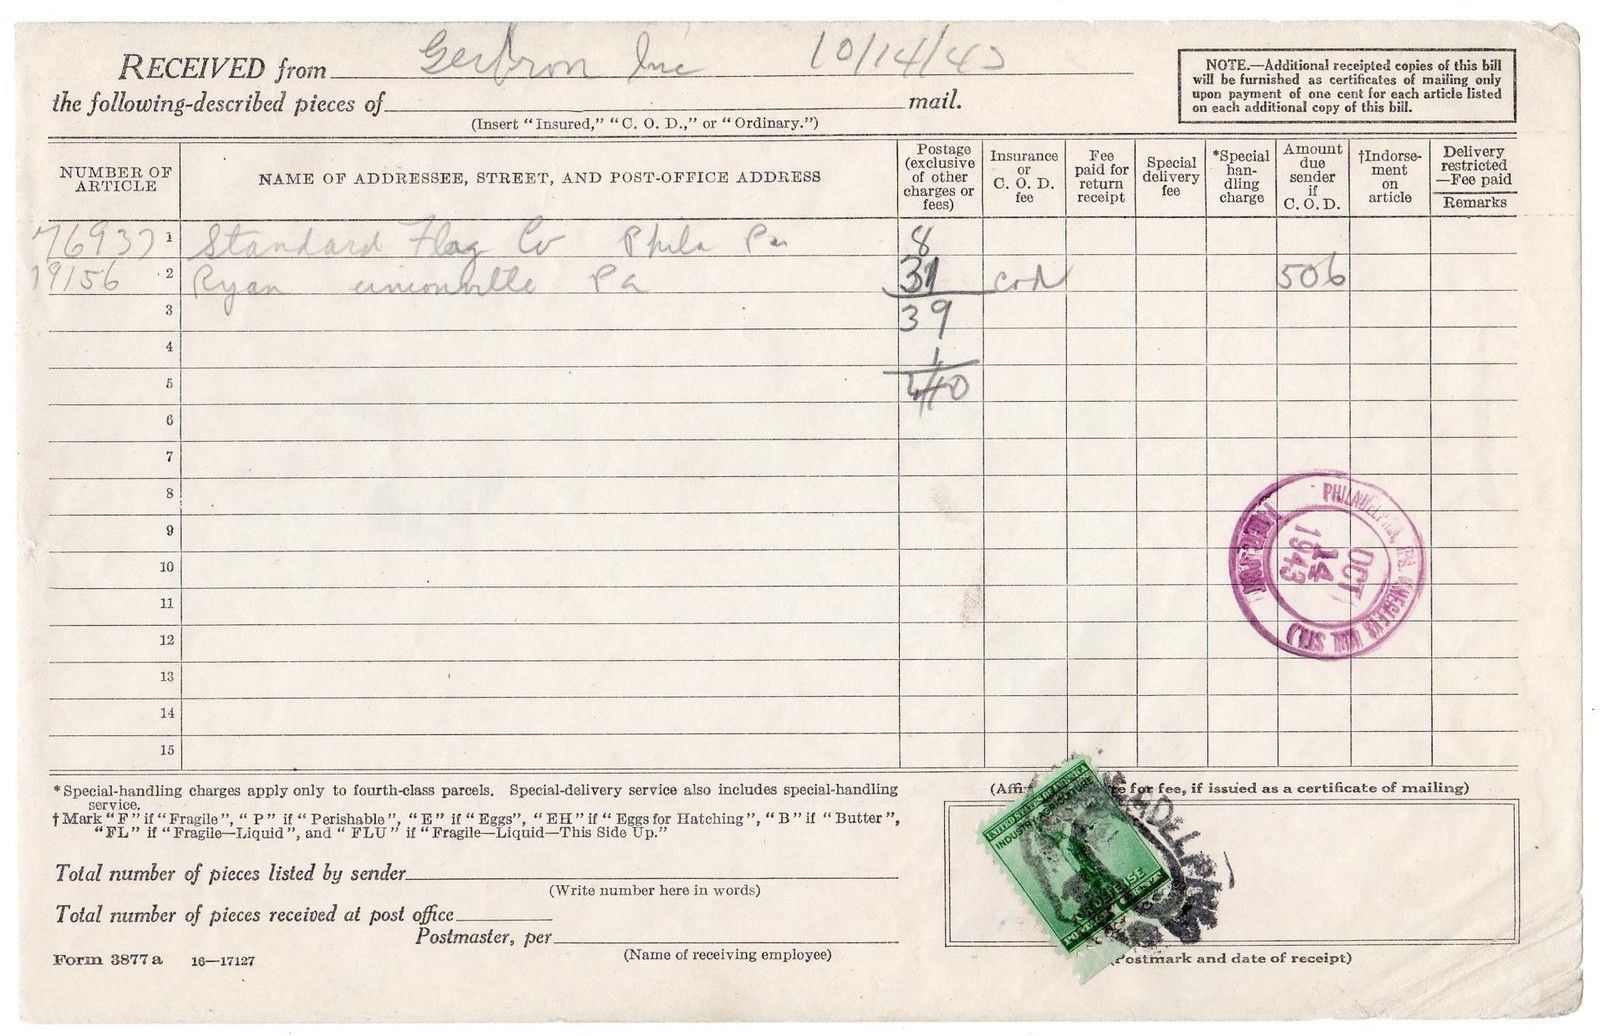 RECEIVED from Gerbron Inc 10/14/43
the following-described pieces of mail.
(Insert "Insured," "C. O. D.," or "Ordinary.")
NOTE.—Additional receipted copies of this bill
will be furnished as certificates of mailing only
upon payment of one cent for each article listed
on each additional copy of this bill.
NUMBER OF
ARTICLE
NAME OF ADDRESSEE, STREET, AND POST-OFFICE ADDRESS
Postage
(exclusive
of other
charges or
fees)
Insurance
or
C. O. D.
fee
Fee
paid for
return
receipt
Special
delivery
fee
*Special
han-
dling
charge
Amount
due
sender
if
C. O. D.
†Indorse-
ment
on
article
Delivery
restricted
—Fee paid
Remarks
76937 1 Standard Flag Co Phila Pa 8
19156 2 Ryan Unionville Pa 31 cod 506
3 39
4 1
5 40
6
7
8
9
10
11
12
13
14
15
PHILADELPHIA, PA.
OCT
14
1943
*Special-handling charges apply only to fourth-class parcels. Special-delivery service also includes special-handling
service.
†Mark "F" if "Fragile", "P" if "Perishable", "E" if "Eggs", "EH" if "Eggs for Hatching", "B" if "Butter",
"FL" if "Fragile—Liquid", and "FLU" if "Fragile—Liquid—This Side Up."
Total number of pieces listed by sender
(Write number here in words)
Total number of pieces received at post office
Postmaster, per
(Name of receiving employee)
Form 3877a 16—17127
for fee, if issued as a certificate of mailing)
UNITED STATES OF AMERICA
INDUSTRY AGRICULTURE
DEFENSE
(Postmark and date of receipt)